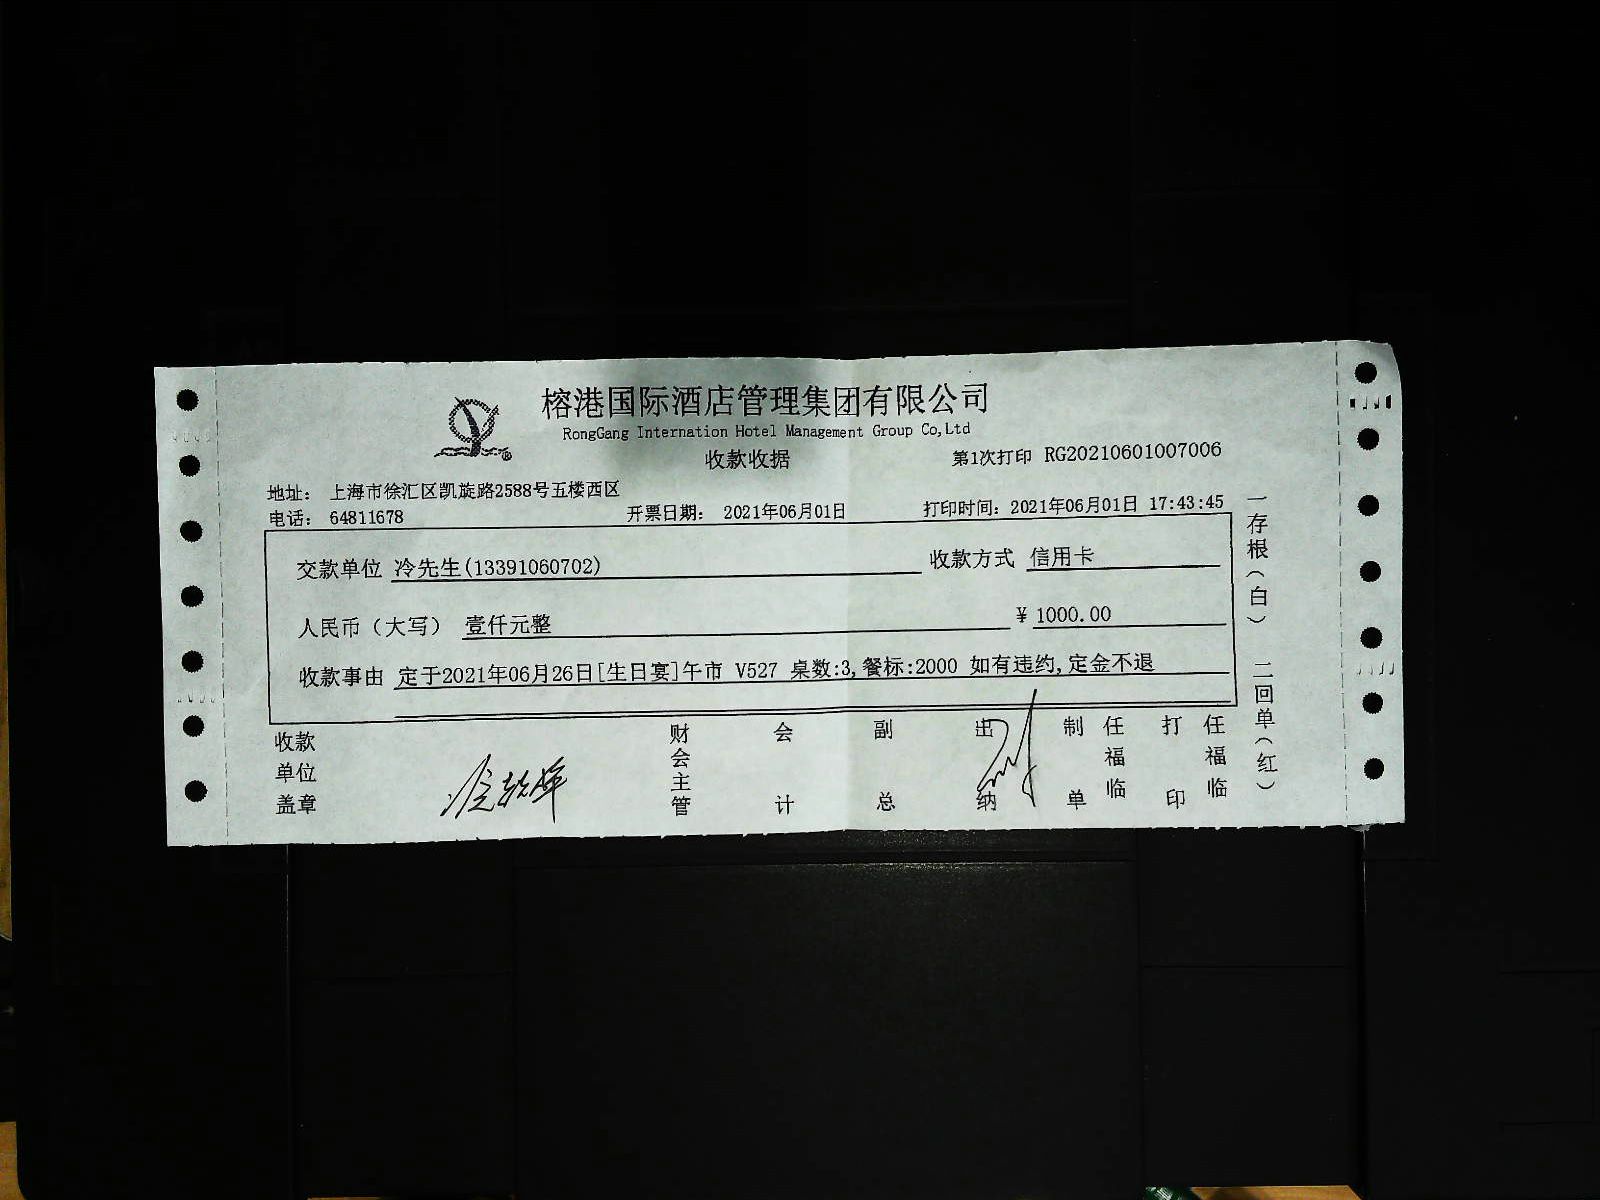 榕港国际酒店管理集团有限公司
RongGang Internation Hotel Management Group Co,Ltd
收款收据
第1次打印 RG20210601007006
地址： 上海市徐汇区凯旋路2588号五楼西区
电话： 64811678 开票日期： 2021年06月01日 打印时间：2021年06月01日 17:43:45
交款单位 冷先生(13391060702) 收款方式 信用卡
人民币（大写） 壹仟元整 ¥ 1000.00
收款事由 定于2021年06月26日[生日宴]午市 V527 桌数:3,餐标:2000 如有违约,定金不退
收款单位盖章
财会主管
会计
副总
出纳
制单
任福临
打印
任福临
一存根（白） 二回单（红）